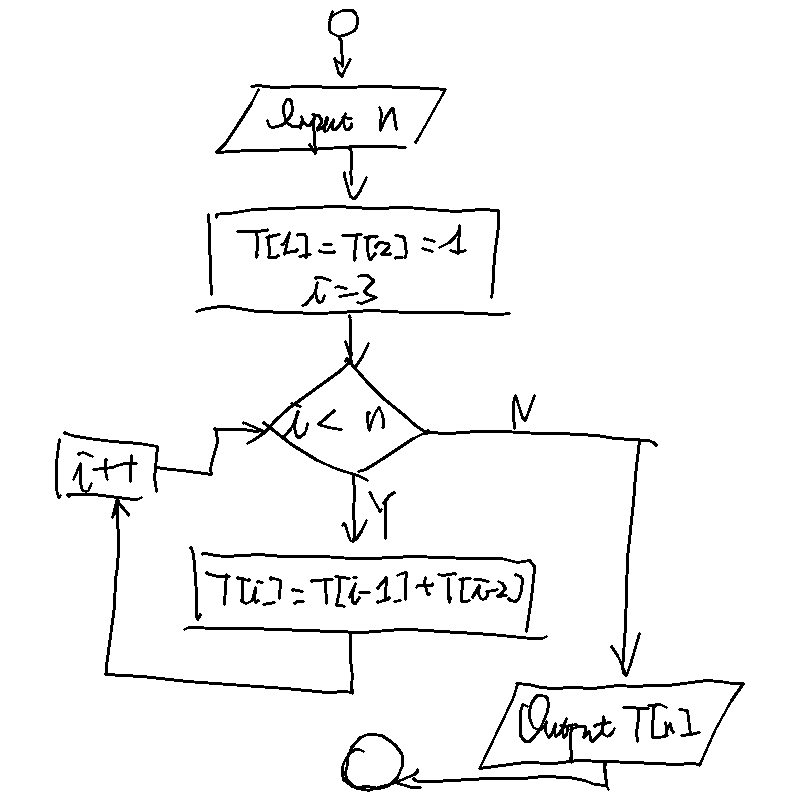 Input n
T[1]=T[2]=1
i=3
i < n
N
i++
Y
T[i]=T[i-1]+T[i-2]
Output T[n]